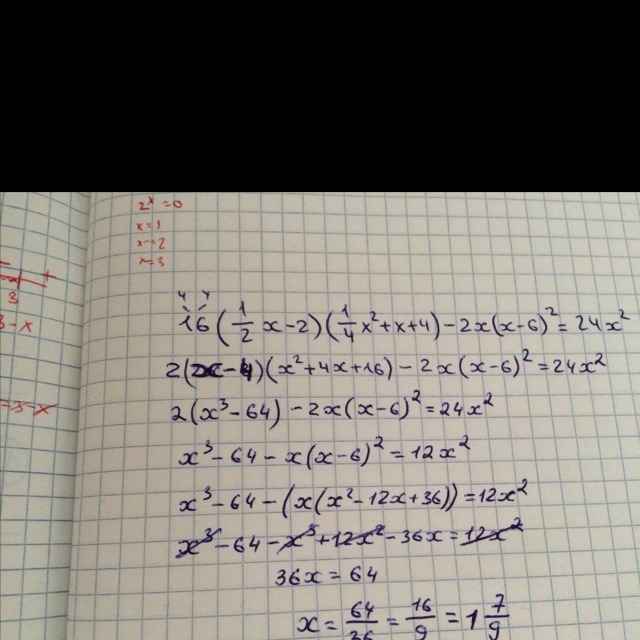 2^x = 0
x = 1
x = 2
x = 3
3
3 - x
= 3 - x
4 4
16(1/2 x - 2)(1/4 x² + x + 4) - 2x(x - 6)² = 24x²
2(x - 4)(x² + 4x + 16) - 2x(x - 6)² = 24x²
2(x³ - 64) - 2x(x - 6)² = 24x²
x³ - 64 - x(x - 6)² = 12x²
x³ - 64 - (x(x² - 12x + 36)) = 12x²
x³ - 64 - x³ + 12x² - 36x = 12x²
36x = 64
x = 64/36 = 16/9 = 1 7/9